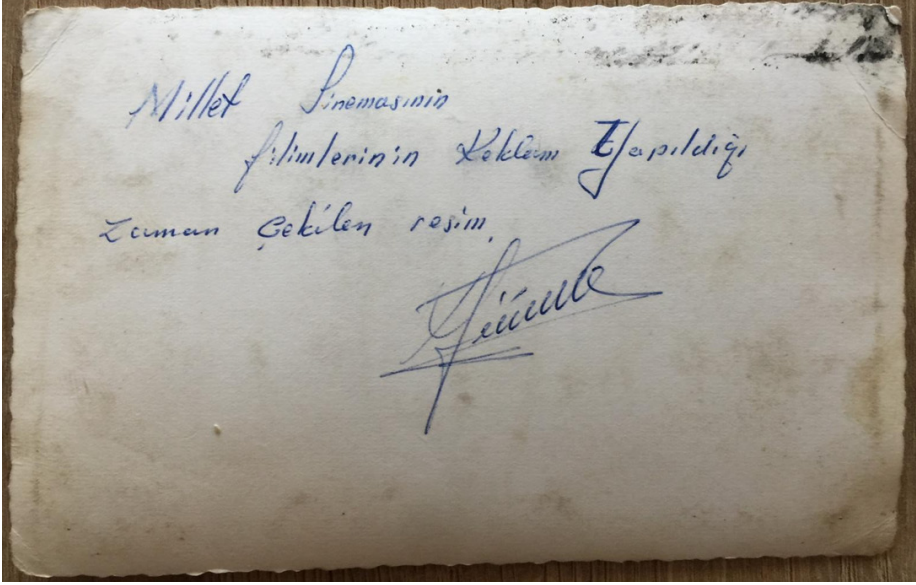 Millet Sinemasının
filimlerinin Reklam Yapıldığı
zaman çekilen resim.